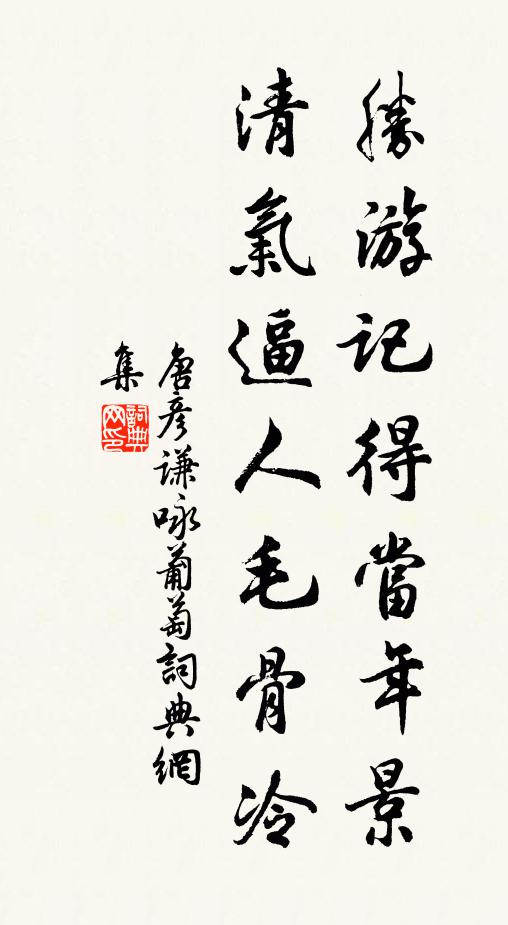 勝游記得當年景
清氣逼人毛骨冷
唐彥謙咏葡萄詞典網
集
詞典
网印